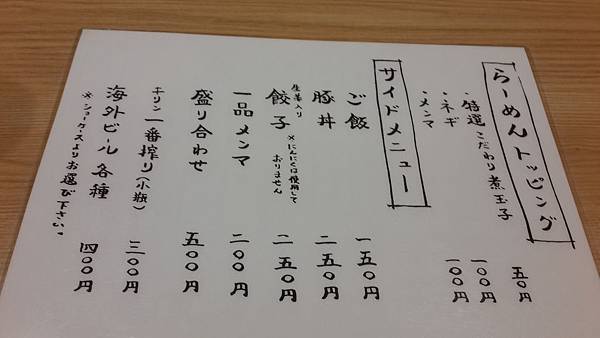 らーめんトッピング
・特選こだわり煮玉子 五〇円
・ネギ 一〇〇円
・メンマ 一〇〇円
サイドメニュー
ご飯 一五〇円
豚丼 二五〇円
生姜入り
餃子 二五〇円
※にんにくは使用して
おりません
一品メンマ 二〇〇円
盛り合わせ 五〇〇円
キリン一番搾り(小瓶) 三〇〇円
海外ビール各種 四〇〇円
※ショーケースよりお選び下さい。